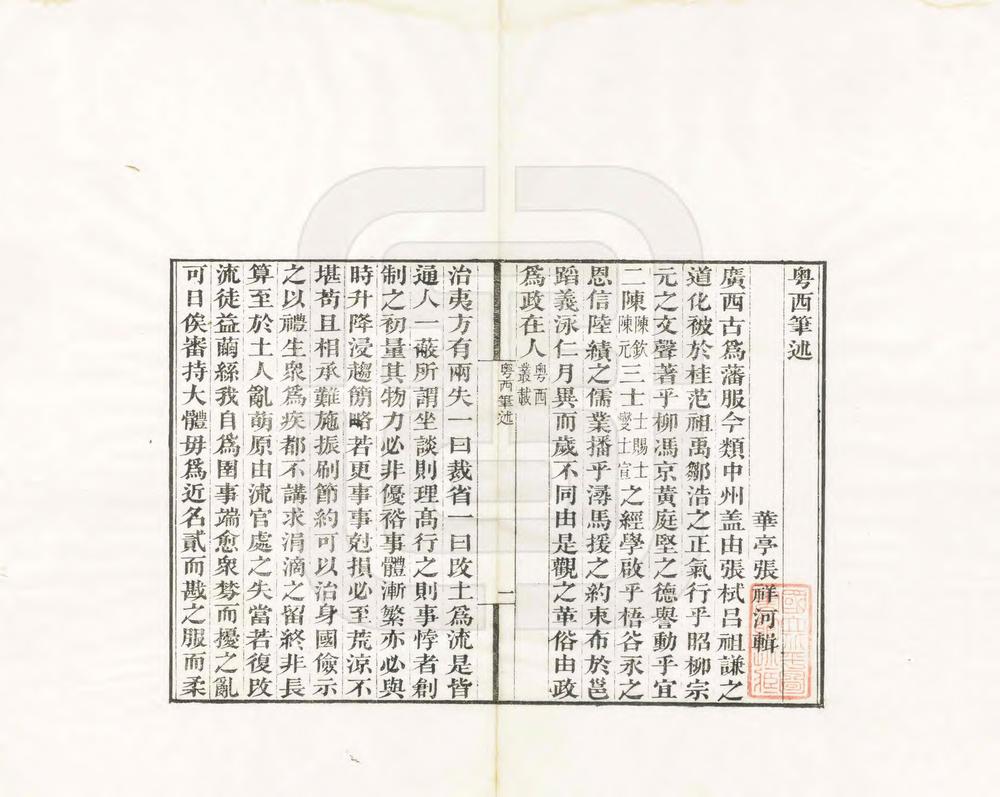 粤西筆述
華亭張祥河輯
廣西古爲藩服今類中州盖由張栻呂祖謙之
道化被於桂范祖禹鄒浩之正氣行乎昭柳宗
元之文聲著乎柳馮京黃庭堅之德譽動乎宜
二陳陳欽陳元三士士賜士燮士壹之經學啟乎梧谷永之
恩信陸績之儒業播乎潯馬援之約束布於邕
蹈義泳仁月異而歲不同由是觀之革俗由政
爲政在人粤西叢載
粤西筆述
一
治夷方有兩失一曰裁省一曰改土爲流是皆
通人一蔽所謂坐談則理髙行之則事悖者創
制之初量其物力必非優裕事體漸繁亦必與
時升降浸趨簡略若更事事尅損必至荒涼不
堪苟且相承難施振刷節約可以治身國儉示
之以禮生衆爲疾都不講求涓滴之留終非長
算至於土人亂萌原由流官處之失當若復改
流徒益繭絲我自爲圉事端愈衆棼而擾之亂
可日俟審持大體毋爲近名貳而戡之服而柔